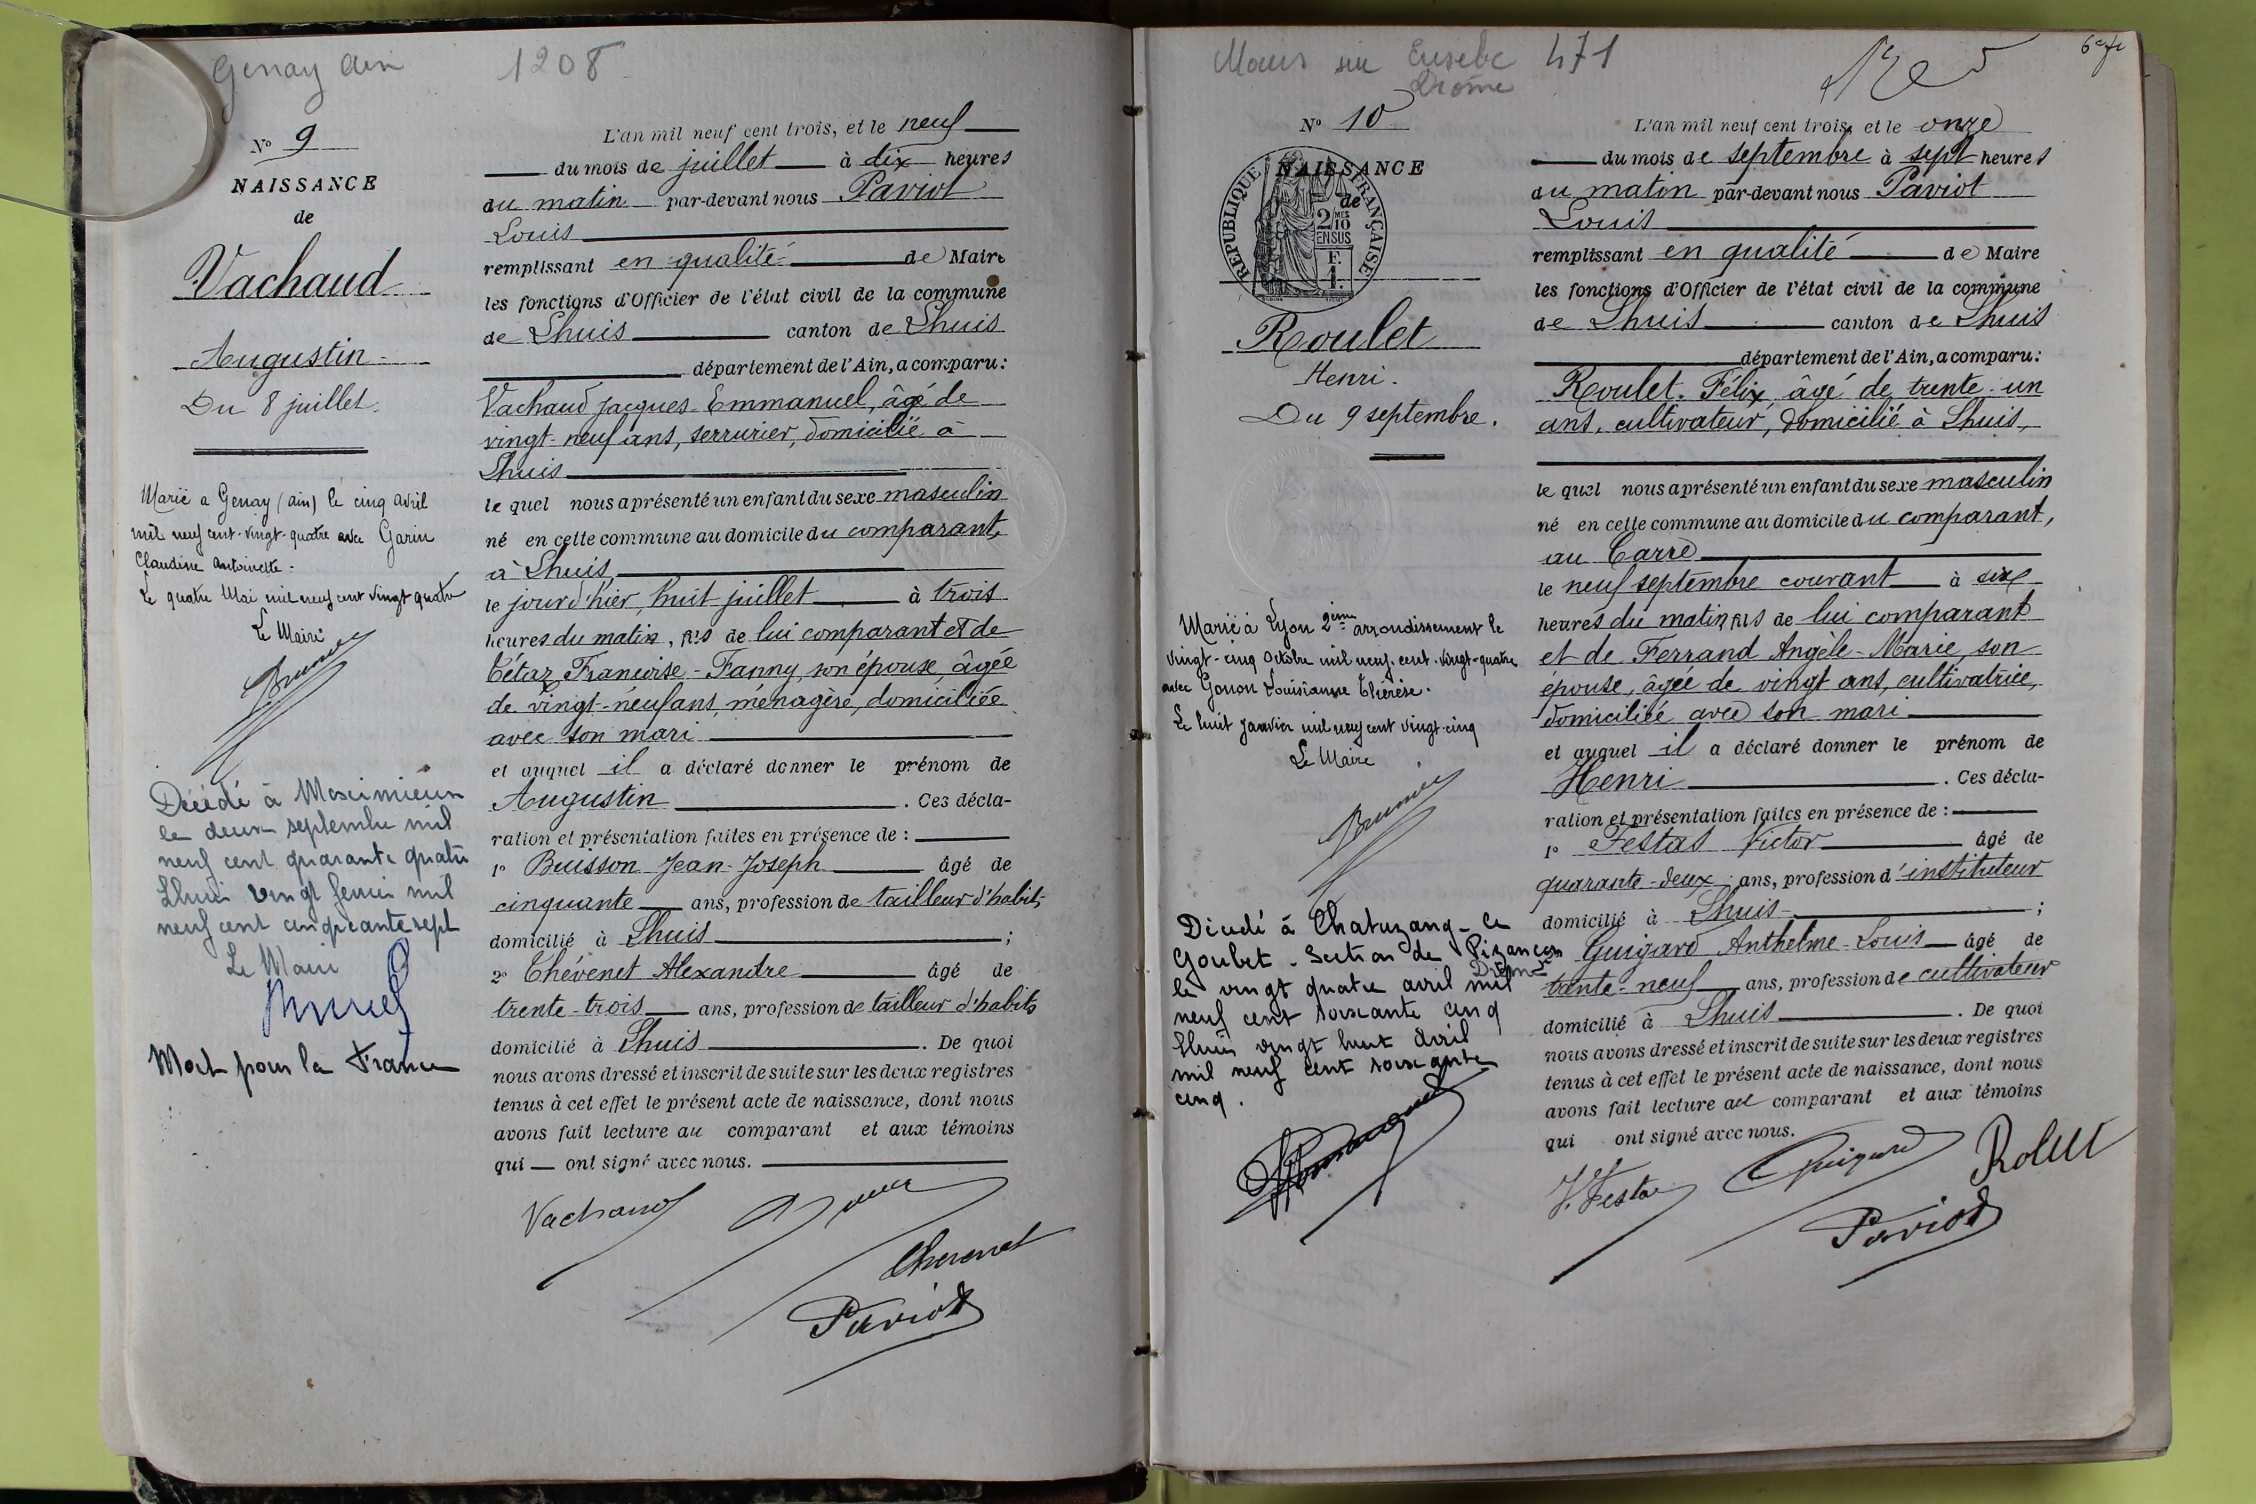 Genay Ain 1208
N° 9
NAISSANCE
de
Vachaud
Augustin
Du 8 juillet.
Marié a Genay (ain) le cinq avril
mil neuf cent vingt-quatre avec Garin
Claudine Antoinette.
Le quatre Mai mil neuf cent vingt quatre
Le Maire
Décédé à Meximieux
le deux septembre mil
neuf cent quarante quatre
Lhuis vingt fevrier mil
neuf cent cinquante sept
Le Maire
Mort pour la France
L'an mil neuf cent trois, et le neuf
du mois de juillet à dix heures
du matin par-devant nous Paviot
Louis
remplissant en qualité de Maire
les fonctions d'Officier de l'état civil de la commune
de Lhuis canton de Lhuis
département de l'Ain, a comparu:
Vachaud Jacques-Emmanuel, âgé de
vingt-neuf ans, serrurier, domicilié à
Lhuis
le quel nous a présenté un enfant du sexe masculin
né en cette commune au domicile du comparant,
à Lhuis
le jour d'hier, huit juillet à trois
heures du matin, fils de lui comparant et de
Tétaz Françoise-Fanny, son épouse, âgée
de vingt-neuf ans, ménagère, domiciliée
avec son mari
et auquel il a déclaré donner le prénom de
Augustin. Ces décla-
ration et présentation faites en présence de :
1° Buisson Jean-Joseph âgé de
cinquante ans, profession de tailleur d'habits
domicilié à Lhuis ;
2° Thévenet Alexandre âgé de
trente-trois ans, profession de tailleur d'habits
domicilié à Lhuis. De quoi
nous avons dressé et inscrit de suite sur les deux registres
tenus à cet effet le présent acte de naissance, dont nous
avons fait lecture au comparant et aux témoins
qui ont signé avec nous.
Vachaud
Thevenet
Paviot
Mours sur Eusebe 471
Drôme
N° 10
NAISSANCE
de
REPUBLIQUE FRANÇAISE
2/10 MES
EN SUS
F.
1.
Roulet
Henri.
Du 9 septembre.
Marié à Lyon 2ème arrondissement le
vingt-cinq Octobre mil neuf cent vingt-quatre
avec Gonon Louisianne Thérèse.
Le huit Janvier mil neuf cent vingt-cinq
Le Maire
Décédé à Chatuzang-le
Goubet - Section de Pizançon
Drôme
le vingt quatre avril mil
neuf cent soixante cinq
Lhuis vingt huit Avril
mil neuf cent soixante
cinq.
L'an mil neuf cent trois, et le onze
du mois de septembre à sept heures
du matin par-devant nous Paviot
Louis
remplissant en qualité de Maire
les fonctions d'Officier de l'état civil de la commune
de Lhuis canton de Lhuis
département de l'Ain, a comparu:
Roulet Félix âgé de trente-un
ans, cultivateur, domicilié à Lhuis,
le quel nous a présenté un enfant du sexe masculin
né en cette commune au domicile du comparant,
au Carre
le neuf septembre courant à six
heures du matin fils de lui comparant
et de Ferrand Angèle-Marie, son
épouse, âgée de vingt ans, cultivatrice,
domiciliée avec son mari
et auquel il a déclaré donner le prénom de
Henri. Ces décla-
ration et présentation faites en présence de :
1° Festas Victor âgé de
quarante-deux ans, profession d'instituteur
domicilié à Lhuis ;
Guigard Anthelme-Louis âgé de
trente-neuf ans, profession de cultivateur
domicilié à Lhuis. De quoi
nous avons dressé et inscrit de suite sur les deux registres
tenus à cet effet le présent acte de naissance, dont nous
avons fait lecture au comparant et aux témoins
qui ont signé avec nous.
V. Festas Guigard Rolet
Paviot